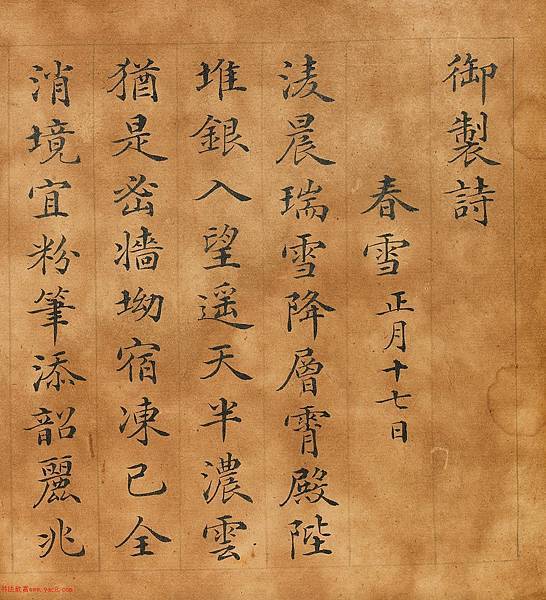 御製詩
春雪正月十七日
淩晨瑞雪降層霄殿陛
堆銀入望遥天半濃雲
猶是密牆坳宿凍已全
消境宜粉筆添韶麗兆
书法欣赏www.yac8.com